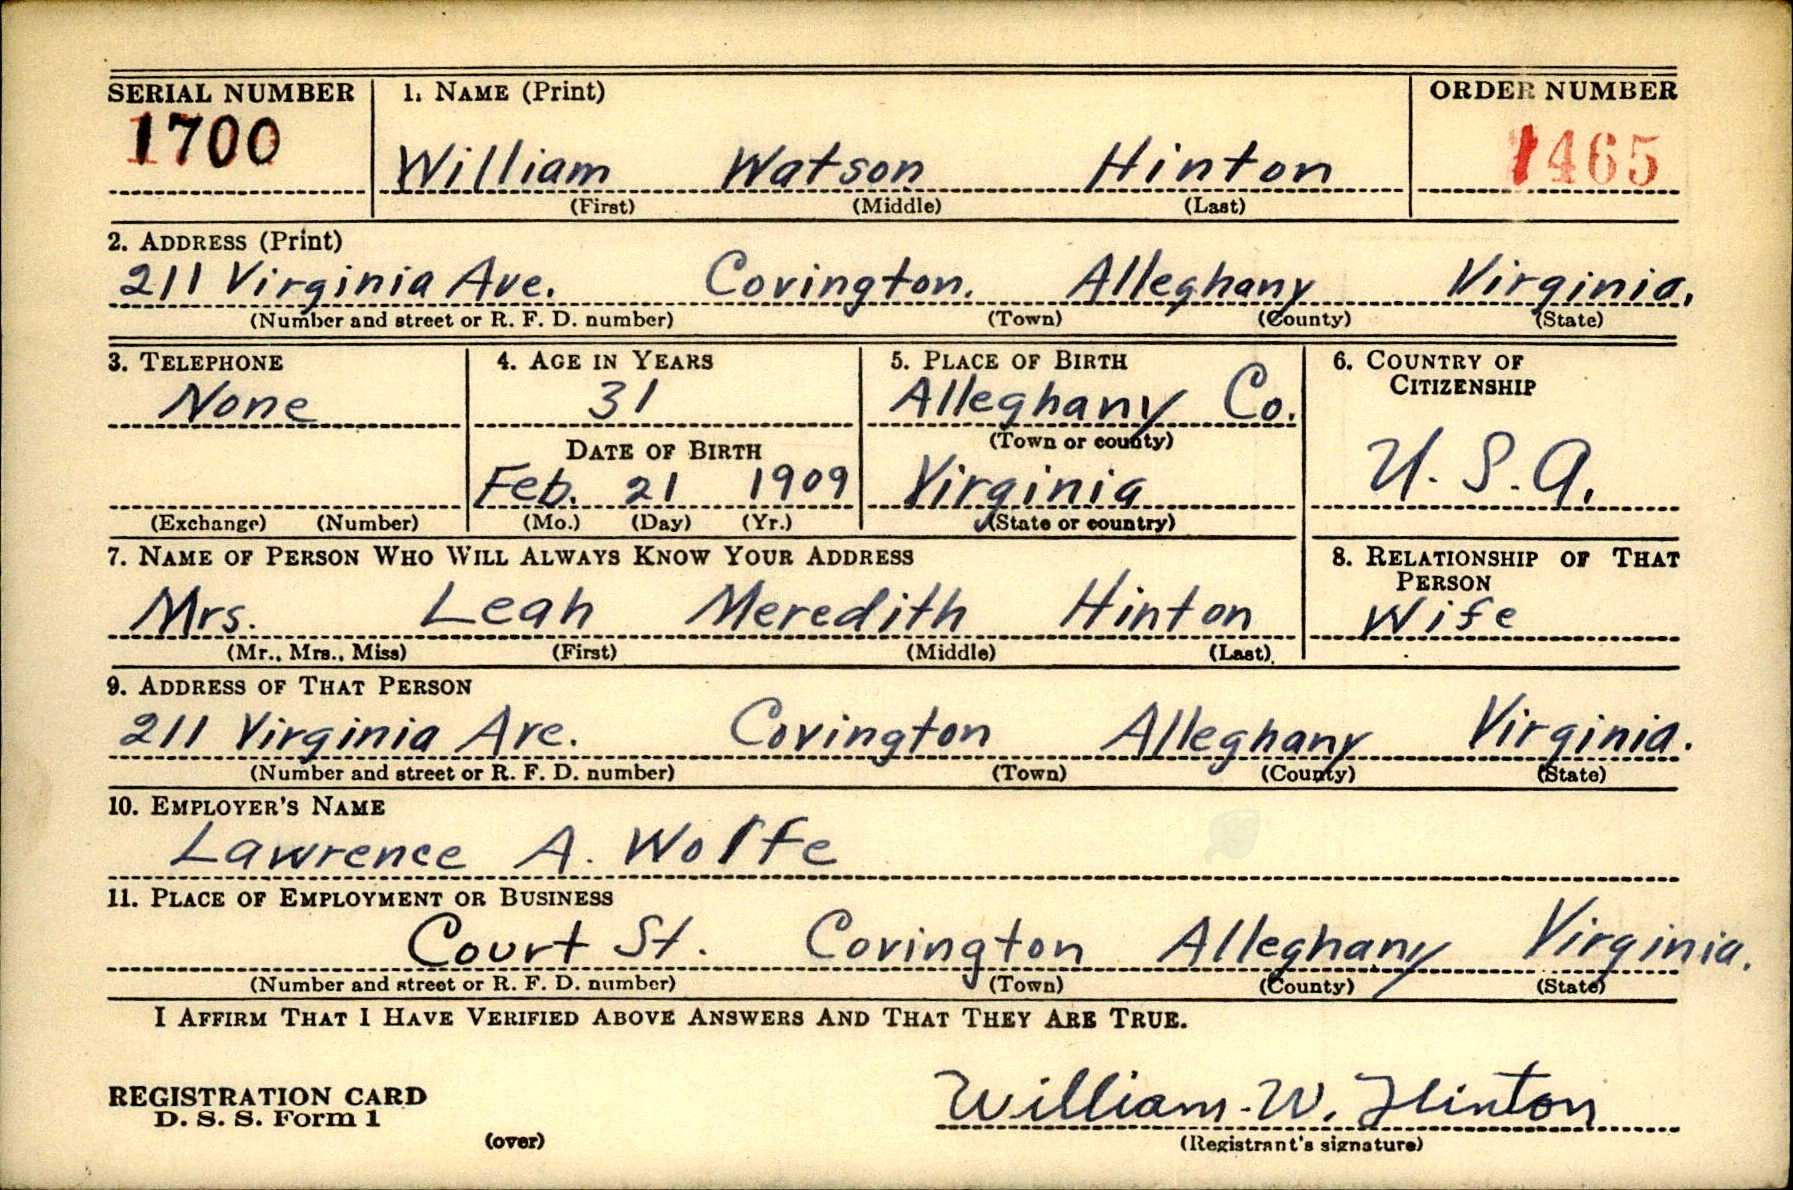 SERIAL NUMBER 1. NAME (Print) ORDER NUMBER
1700 William Watson Hinton 1465
(First) (Middle) (Last)
2. ADDRESS (Print)
211 Virginia Ave. Covington. Alleghany Virginia.
(Number and street or R. F. D. number) (Town) (County) (State)
3. TELEPHONE 4. AGE IN YEARS 5. PLACE OF BIRTH 6. COUNTRY OF
CITIZENSHIP
None 31 Alleghany Co.
(Town or county)
DATE OF BIRTH
Feb. 21 1909 Virginia U. S. A.
(Exchange) (Number) (Mo.) (Day) (Yr.) (State or country)
7. NAME OF PERSON WHO WILL ALWAYS KNOW YOUR ADDRESS 8. RELATIONSHIP OF THAT
PERSON
Mrs. Leah Meredith Hinton Wife
(Mr., Mrs., Miss) (First) (Middle) (Last)
9. ADDRESS OF THAT PERSON
211 Virginia Ave. Covington Alleghany Virginia.
(Number and street or R. F. D. number) (Town) (County) (State)
10. EMPLOYER'S NAME
Lawrence A. Wolfe
11. PLACE OF EMPLOYMENT OR BUSINESS
Court St. Covington Alleghany Virginia.
(Number and street or R. F. D. number) (Town) (County) (State)
I AFFIRM THAT I HAVE VERIFIED ABOVE ANSWERS AND THAT THEY ARE TRUE.
REGISTRATION CARD
D. S. S. Form 1
William W. Hinton
(over) (Registrant's signature)